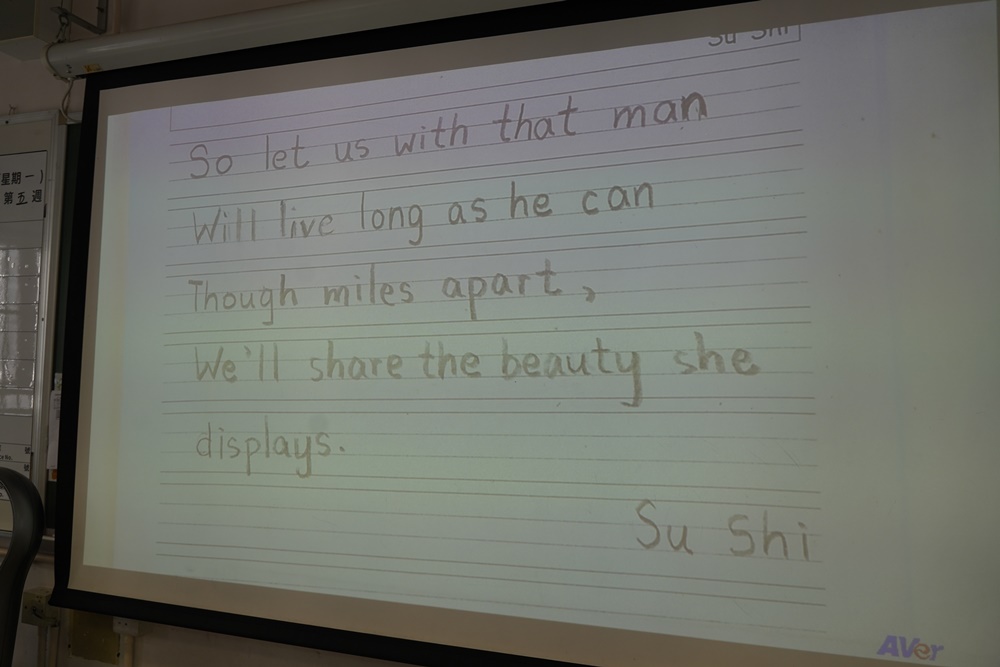 Su Shi
So let us with that man
Will live long as he can
Though miles apart,
We'll share the beauty she
displays.
Su Shi
星期一)
第五週
號
號
AVer